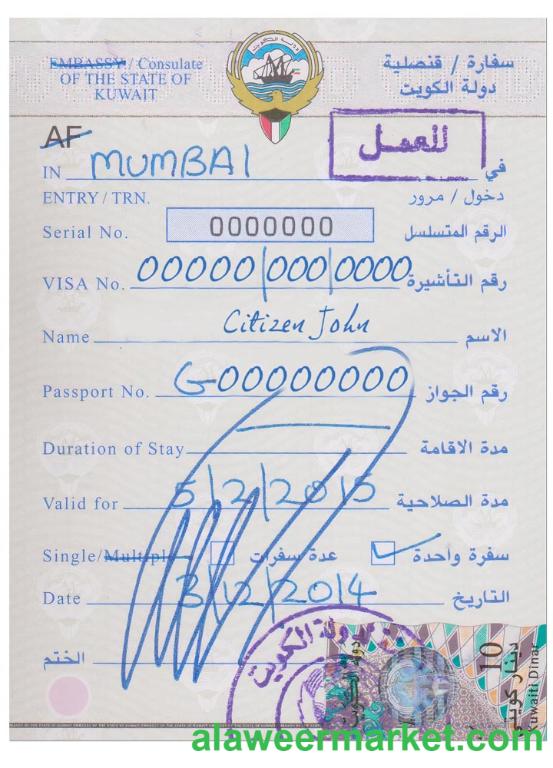 EMBASSY / Consulate سفارة / قنصلية
OF THE STATE OF دولة الكويت
KUWAIT
AF للعمل
IN MUMBAI في
ENTRY / TRN. دخول / مرور
Serial No. 0000000 الرقم المتسلسل
VISA No. 00000/000/0000 رقم التأشيرة
Name Citizen John الاسم
Passport No. G00000000 رقم الجواز
Duration of Stay مدة الاقامة
Valid for 5/2/2015 مدة الصلاحية
Single/Multiple عدة سفرات سفرة واحدة
Date 3/12/2014 التاريخ
الختم
دولة الكويت
10 دينار كويتي
Kuwaiti Dinar
alaweermarket.com